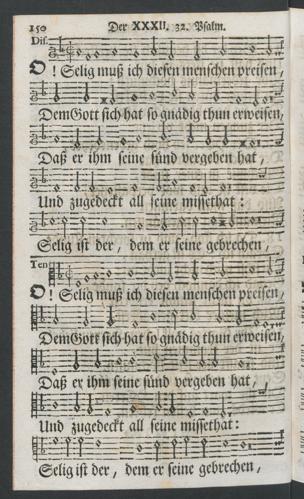 150 Der XXXII. 32. Psalm.
Dis.
O! Selig muß ich diesen menschen preisen,
Dem Gott sich hat so gnädig thun erweisen,
Daß er ihm seine sünd vergeben hat,
Und zugedeckt all seine missethat:
Selig ist der, dem er seine gebrechen,
Ten
O! Selig muß ich diesen menschen preisen,
Dem Gott sich hat so gnädig thun erweisen,
Daß er ihm seine sünd vergeben hat,
Und zugedeckt all seine missethat:
Selig ist der, dem er seine gebrechen,